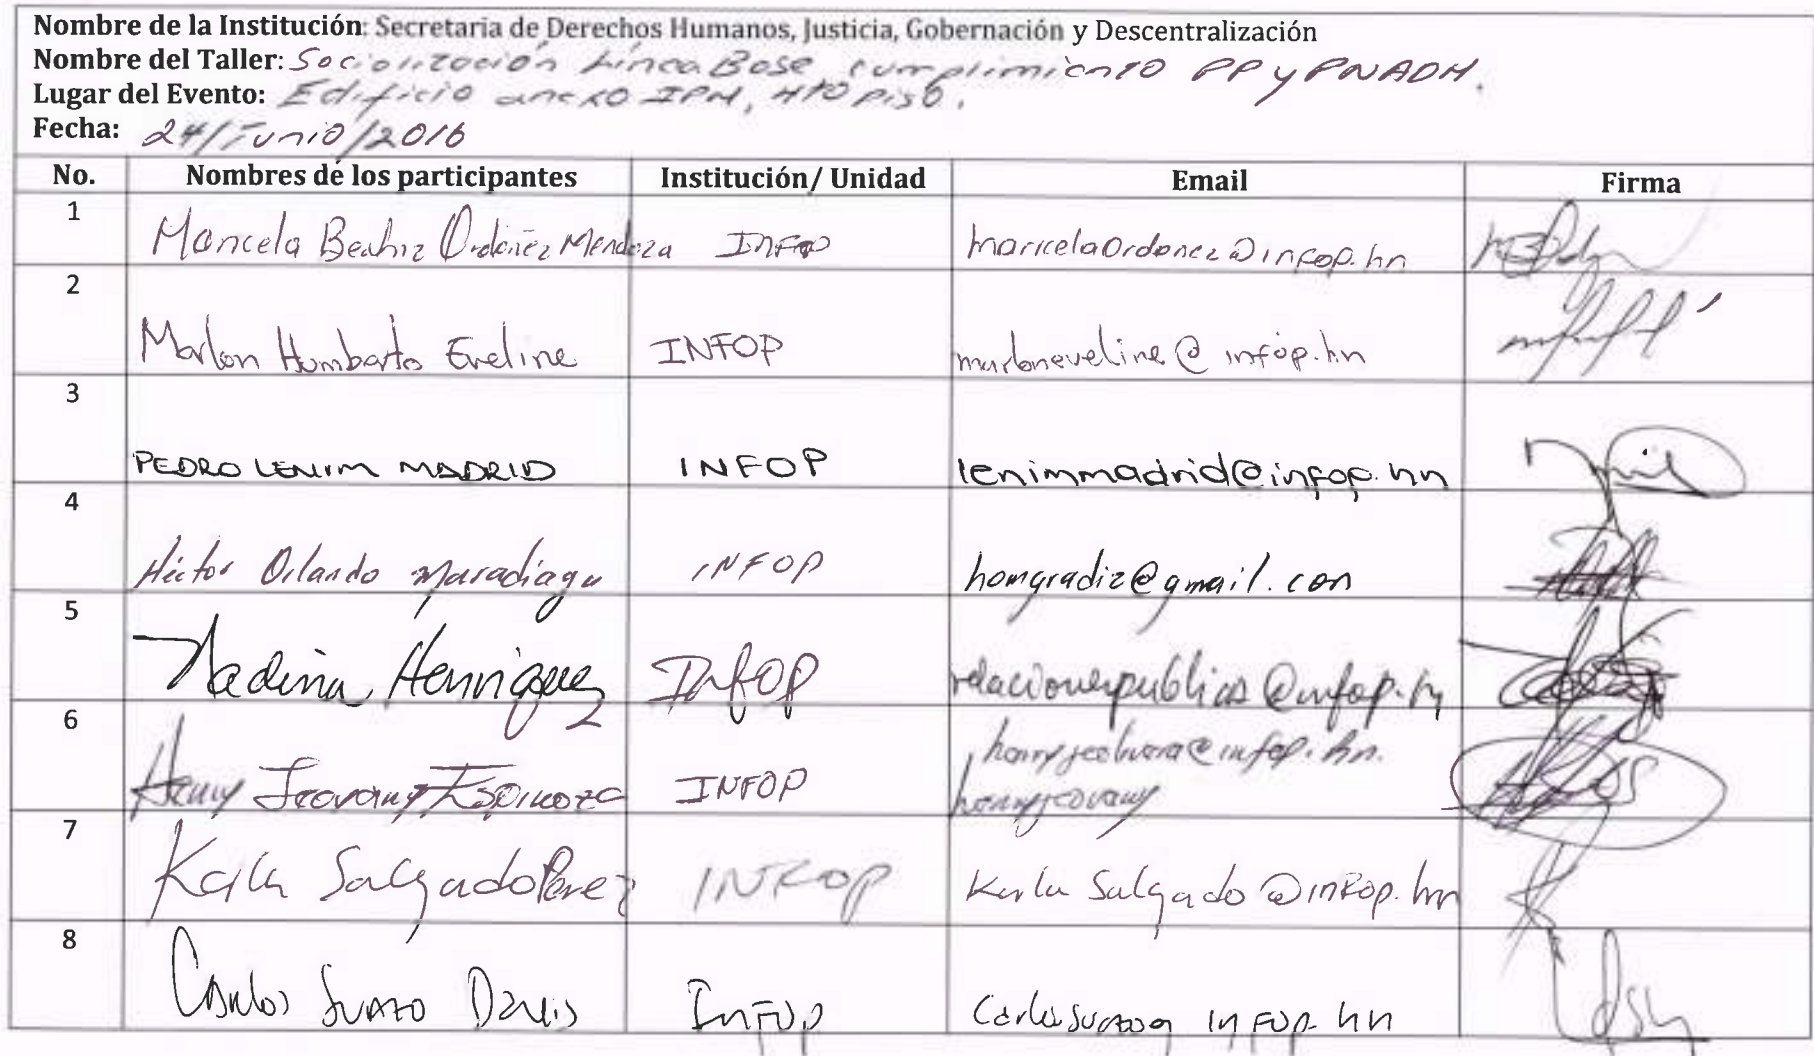 Nombre de la Institución: Secretaria de Derechos Humanos, Justicia, Gobernación y Descentralización
Nombre del Taller: Sociolización Línea Base cumplimiento PP y PNADH.
Lugar del Evento: Edificio anexo IPM, 4to piso.
Fecha: 24/Junio/2016
No. Nombres de los participantes Institución/ Unidad Email Firma
1 Maricela Beatriz Ordoñez Mendoza INFOP maricelaordonez@infop.hn
2 Marlon Humberto Eveline INFOP marloneveline@infop.hn
3 PEDRO LENIM MADRID INFOP lenimmadrid@infop.hn
4 Héctor Orlando Maradiaga INFOP homgradiz@gmail.com
5 Nadina Henriquez INFOP relacionespublicas@infop.hn
6 Henry Jeovany Espinoza INFOP @infop.hn.
henryjeovany
7 Karla Salgado Perez INFOP Karla Salgado @infop.hn
8 Carlos Suazo INFOP infop.hn